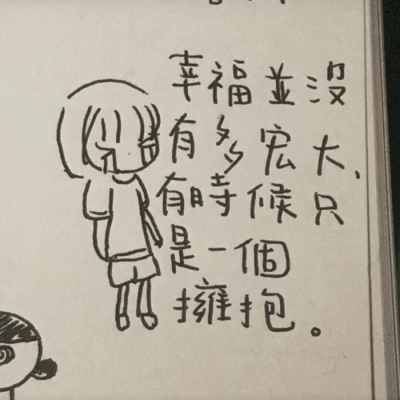 幸福並沒
有多宏大,
有時候只
是一個
擁抱。